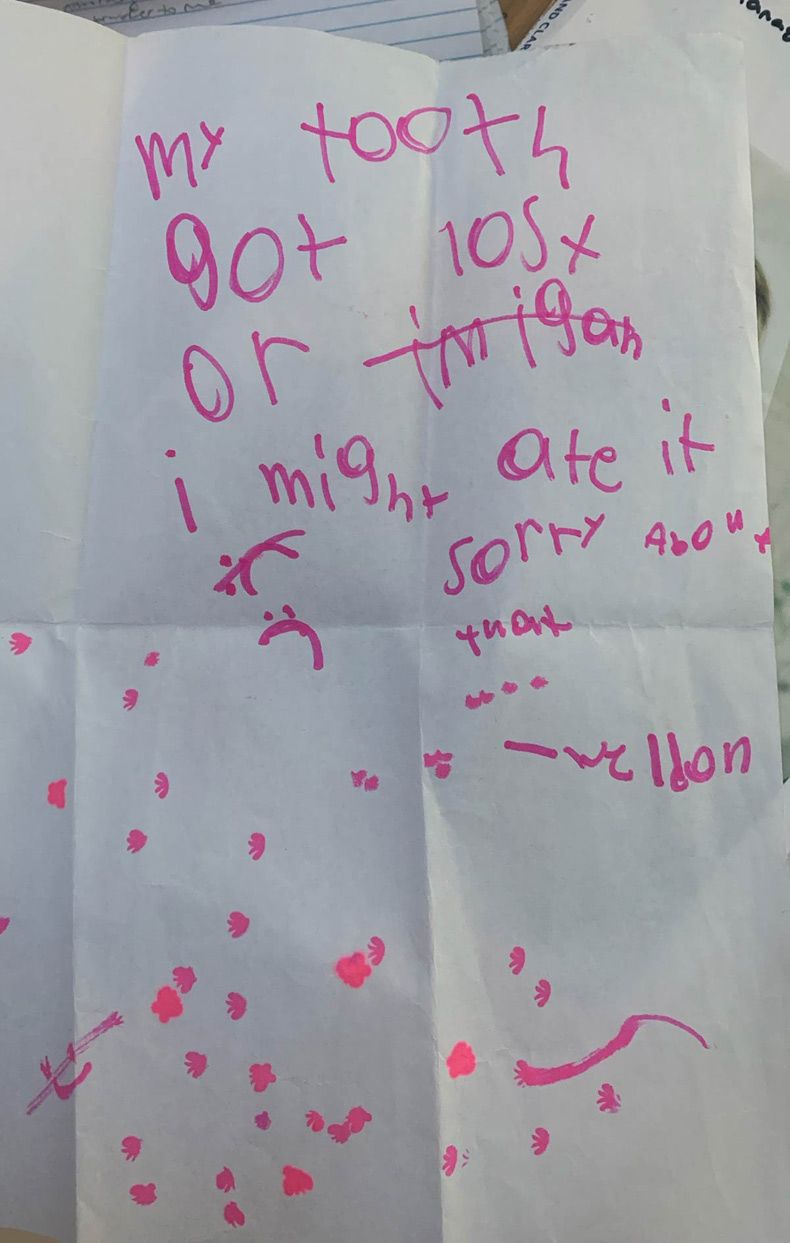 my tooth
got lost
or imigah
i might ate it
:( sorry About
:( that
...
- welldon
AND CLAR